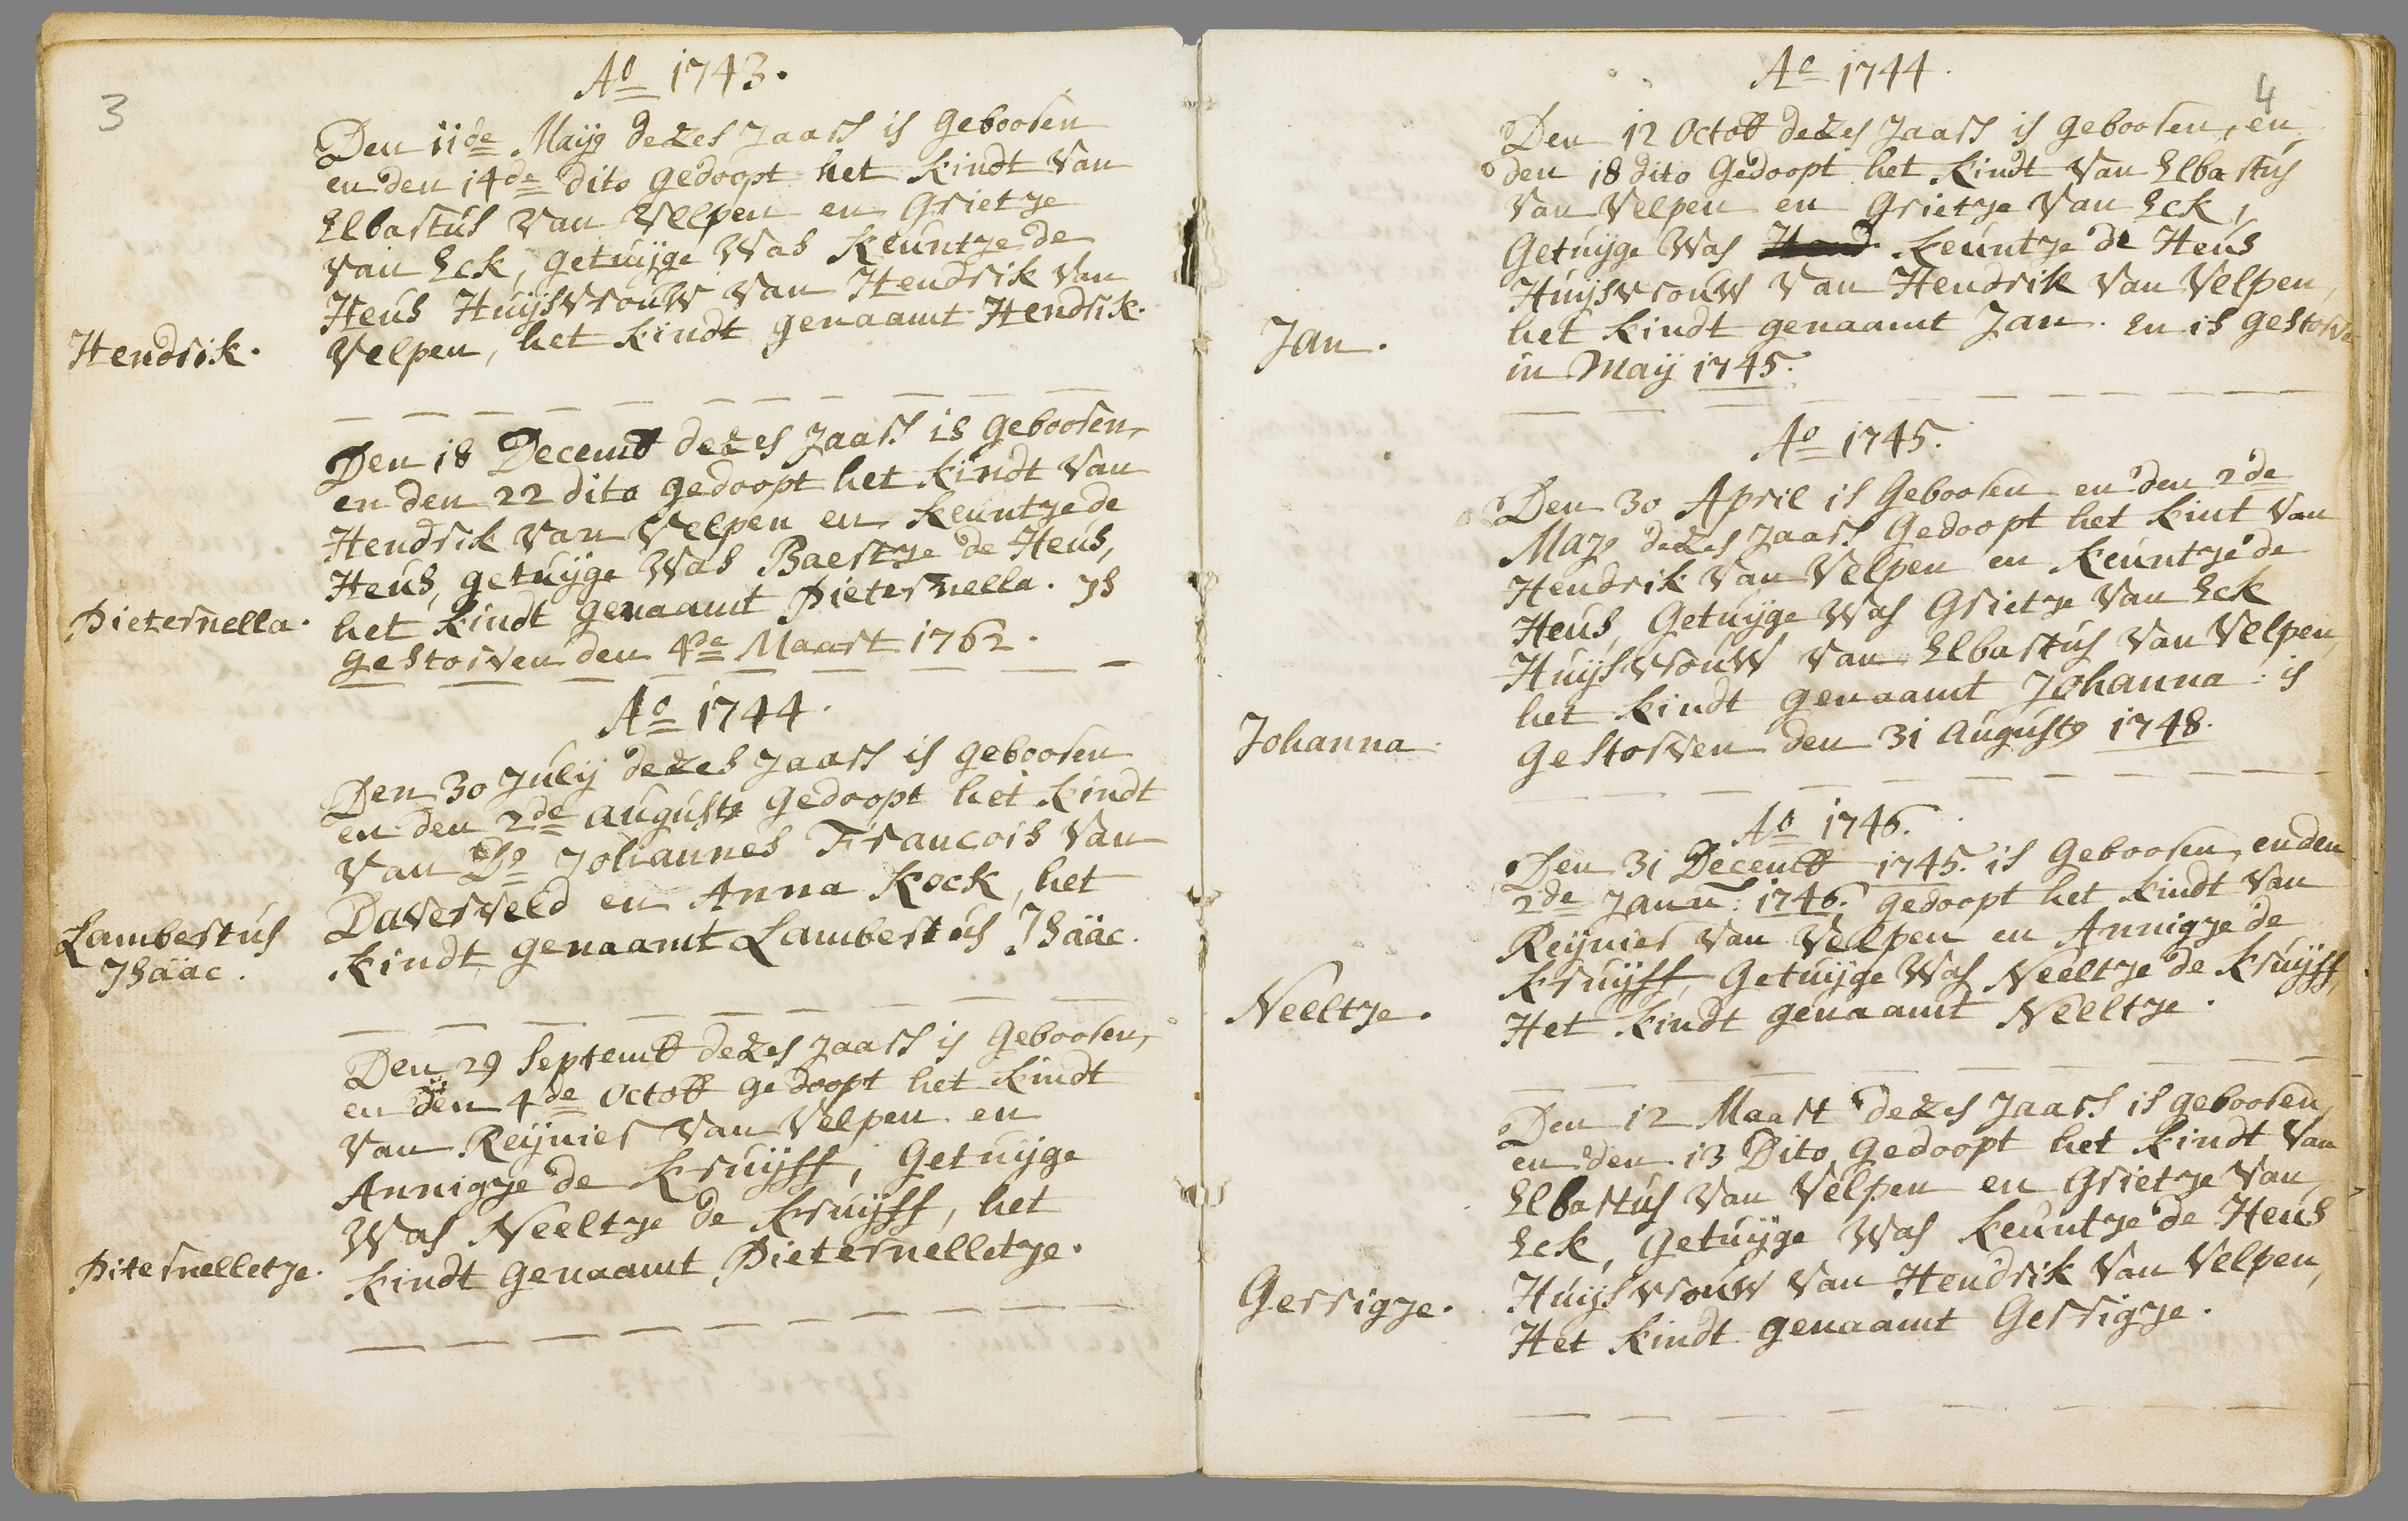 3
Ao 1743.
Den 11de Mayo dezes Jaars is gebooren
en den 14de dito gedoopt het kindt van
Elbartus van Velpen en Grietje
van Eck, getuijge was Keuntje de
Heus Huijsvrouw van Hendrik van
Hendrik.
Velpen, het kindt genaamt Hendrik.
Den 18 Decemb dezes Jaars is gebooren,
en den 22 dito gedoopt het kindt van
Hendrik van Velpen en Keuntje de
Heus, getuijge was Baertje de Heus,
Pieternella.
het kindt genaamt Pieternella. Is
gestorven den 4de Maart 1762.
Ao 1744.
Den 30 July dezes Jaars is gebooren
en den 2de augusty gedoopt het kindt
van Do Johannes Francois van
Daverveld en Anna Kock, het
Lambertus
Isäac.
kindt genaamt Lambertus Isäac.
Den 29 Septemb dezes Jaars is Gebooren,
en den 4de Octob gedoopt het kindt
van Reijnier van Velpen en
Annigje de Kruijff, Getuijge
was Neeltje de Kruijff, het
Piternelletje.
kindt genaamt Pieternelletje.
4
Ao 1744.
Den 12 Octob dezes Jaars is gebooren, en
den 18 dito Gedoopt het kindt van Elbartus
van Velpen en Grietje van Eck,
Getuijge was Keuntje de Heus
Huijsvrouw van Hendrik van Velpen,
Jan.
het kindt genaamt Jan. En is gestorve
in Maij 1745.
Ao 1745.
Den 30 April is Gebooren en den 2de
Mayo dezes Jaars Gedoopt het kint van
Hendrik van Velpen en Keuntje de
Heus, Getuijge was Grietje van Eck
Huijsvrouw van Elbartus van Velpen,
Johanna.
het kindt genaamt Johanna: is
Gestorven den 31 Augusty 1748.
Ao 1746.
Den 31 Decemb 1745. is Gebooren, en den
2de Janu: 1746. gedoopt het kindt van
Reijnier van Velpen en Annigje de
Kruijff, Getuijge was Neeltje de Kruijff,
Neeltje.
Het kindt genaamt Neeltje.
Den 12 Maart dezes Jaars is gebooren,
en den 13 Dito Gedoopt het kindt van
Elbartus van Velpen en Grietje van
Eck, Getuijge was Keuntje de Heus
Huijsvrouw van Hendrik van Velpen,
Gerrigje.
Het kindt genaamt Gerrigje.